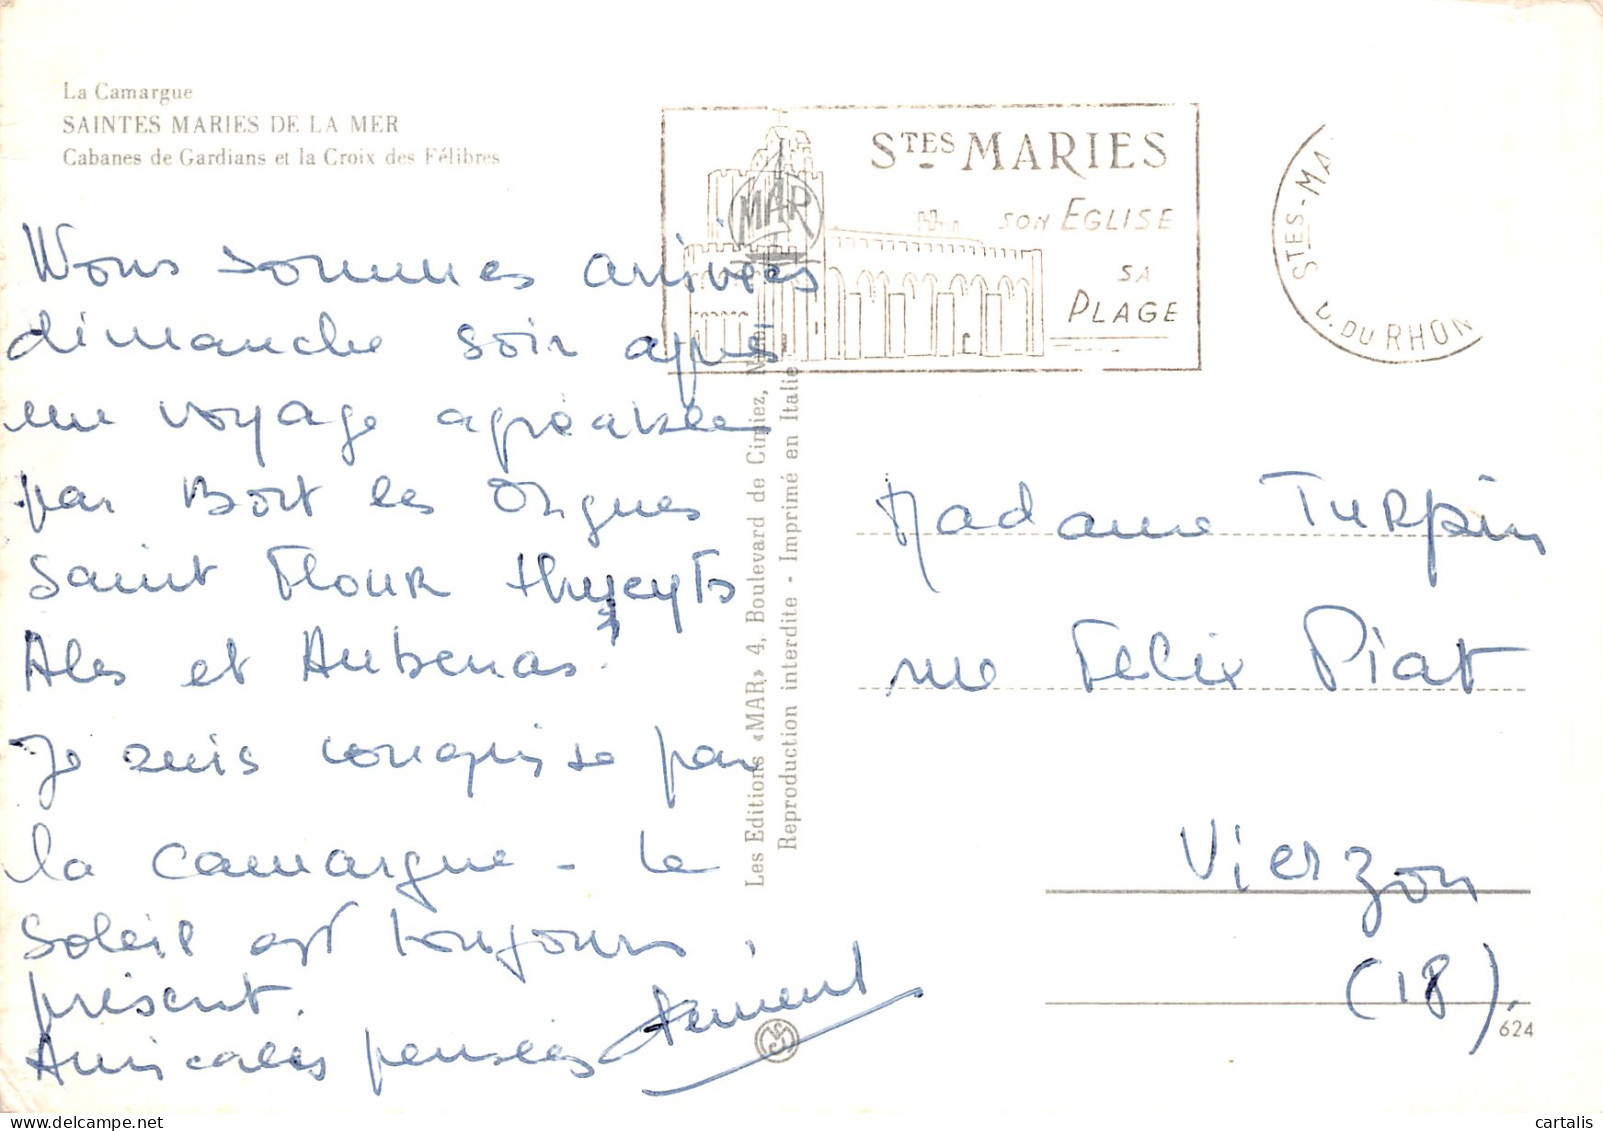 La Camargue
SAINTES MARIES DE LA MER
Cabanes de Gardians et la Croix des Félibres
Nous sommes arrivées
dimanche soir après
un voyage agréable
par Bort les Orgues
Saint Flour thueyts
Ales et Aubenas.
Je suis conquise par
la camargue - le
soleil est toujours
présent.
Amicales pensées
STES MARIES
SON EGLISE
SA
PLAGE
MAR
STES-MA
B. DU RHON
Les Editions «MAR» 4, Boulevard de Cimiez, Nice
Reproduction interdite - Imprimé en Italie
Madame Turpin
rue Felix Piat
Vierzon
(18).
624
cartalis - www.delcampe.net